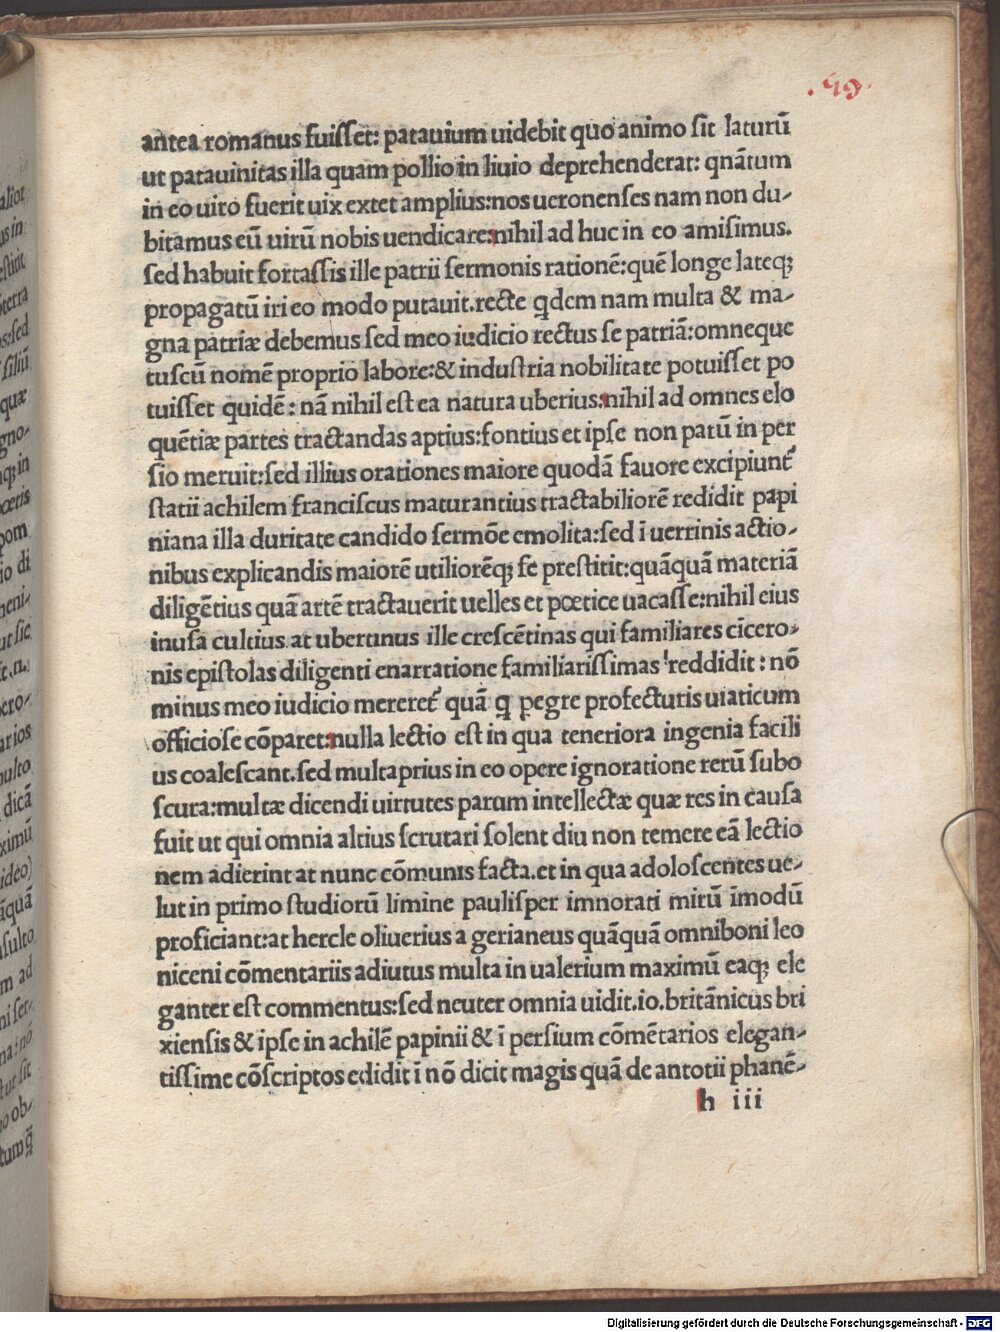 .59.
antea romanus fuisset: patauium uidebit quo animo sit laturū
ut patauinitas illa quam pollio in liuio deprehenderat: qnātum
in eo uiro fuerit uix extet amplius:nos ueronenses nam non du-
bitamus eū uirū nobis uendicare:nihil ad huc in eo amisimus.
sed habuit fortassis ille patrii sermonis rationē:quē longe lateqꝫ
propagatū iri eo modo putauit.recte qdem nam multa & ma-
gna patriæ debemus sed meo iudicio rectus se patriā:omneque
tuscū nomē proprio labore:& industria nobilitate potuisset po
tuisset quidē: nā nihil est ea natura uberius:nihil ad omnes elo
quētiæ partes tractandas aptius:fontius et ipse non patū in per
sio meruit:sed illius orationes maiore quodā fauore excipiunt᷑
statii achilem franciscus maturantius tractabiliorē redidit papi
niana illa duritate candido sermōe emolita:sed ī uerrinis actio-
nibus explicandis maiorē utiliorēqꝫ se prestitit:quāquā materiā
diligētius quā artē tractauerit uelles et poetice uacasse:nihil eius
inusa cultius at ubertinus ille crescētinas qui familiares cicero-
nis epistolas diligenti enarratione familiarissimas reddidit: nō
minus meo iudicio mereret᷑ quā q ꝑegre profecturis uiaticum
officiose cōparet:nulla lectio est in qua teneriora ingenia facili
us coalescant.sed multa prius in eo opere ignoratione rerū subo
scura:multæ dicendi uirtutes parum intellectæ quæ res in causa
fuit ut qui omnia altius scrutari solent diu non temere eā lectio
nem adierint at nunc cōmunis facta.et in qua adoloscentes ue-
lut in primo studiorū limine paulisper imnorati mirū īmodū
proficiant:at hercle oliuerius a gerianeus quāquā omniboni leo
niceni cōmentariis adiutus multa in ualerium maximū eaqꝫ ele
ganter est commentus:sed neuter omnia uidit.io.britānicus bri
xiensis & ipse in achilē papinii & ī persium cōmētarios elegan-
tissime cōscriptos edidit ī nō dicit magis quā de antotii phanē-
h iii
Digitalisierung gefördert durch die Deutsche Forschungsgemeinschaft - DFG